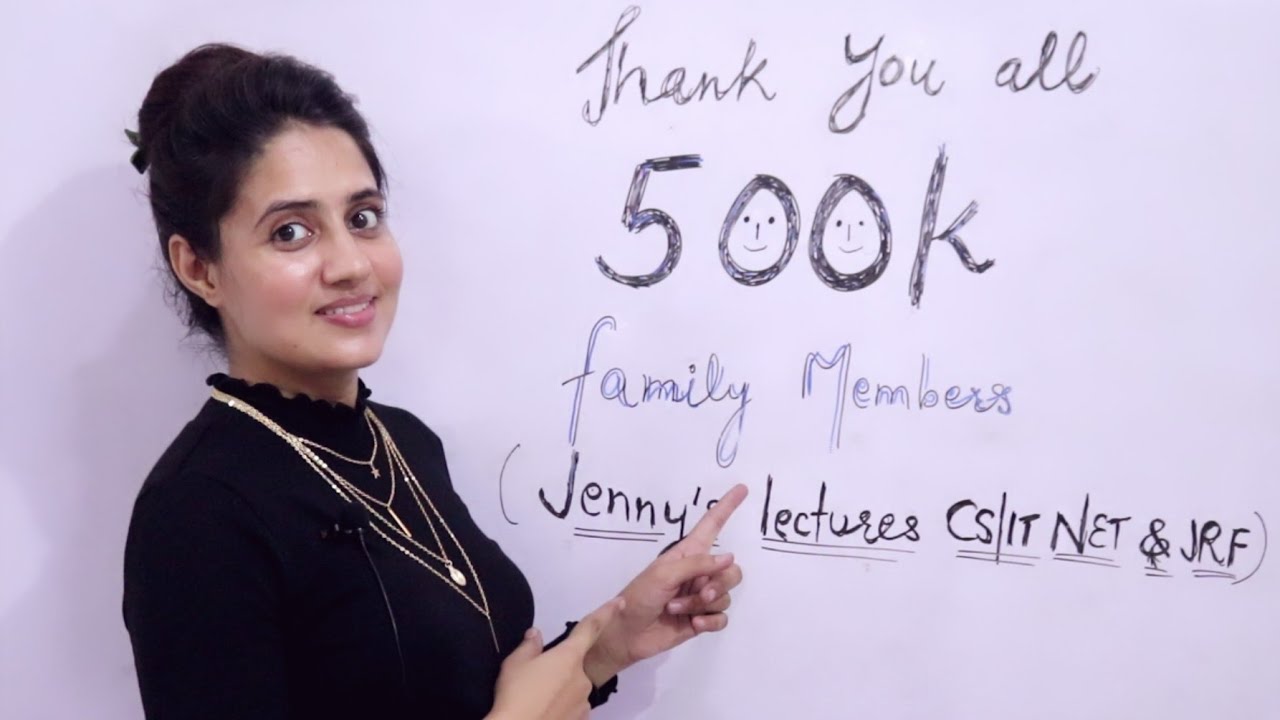 Thank You all
500k
family Members
(Jenny's lectures CS/IT NET & JRF)